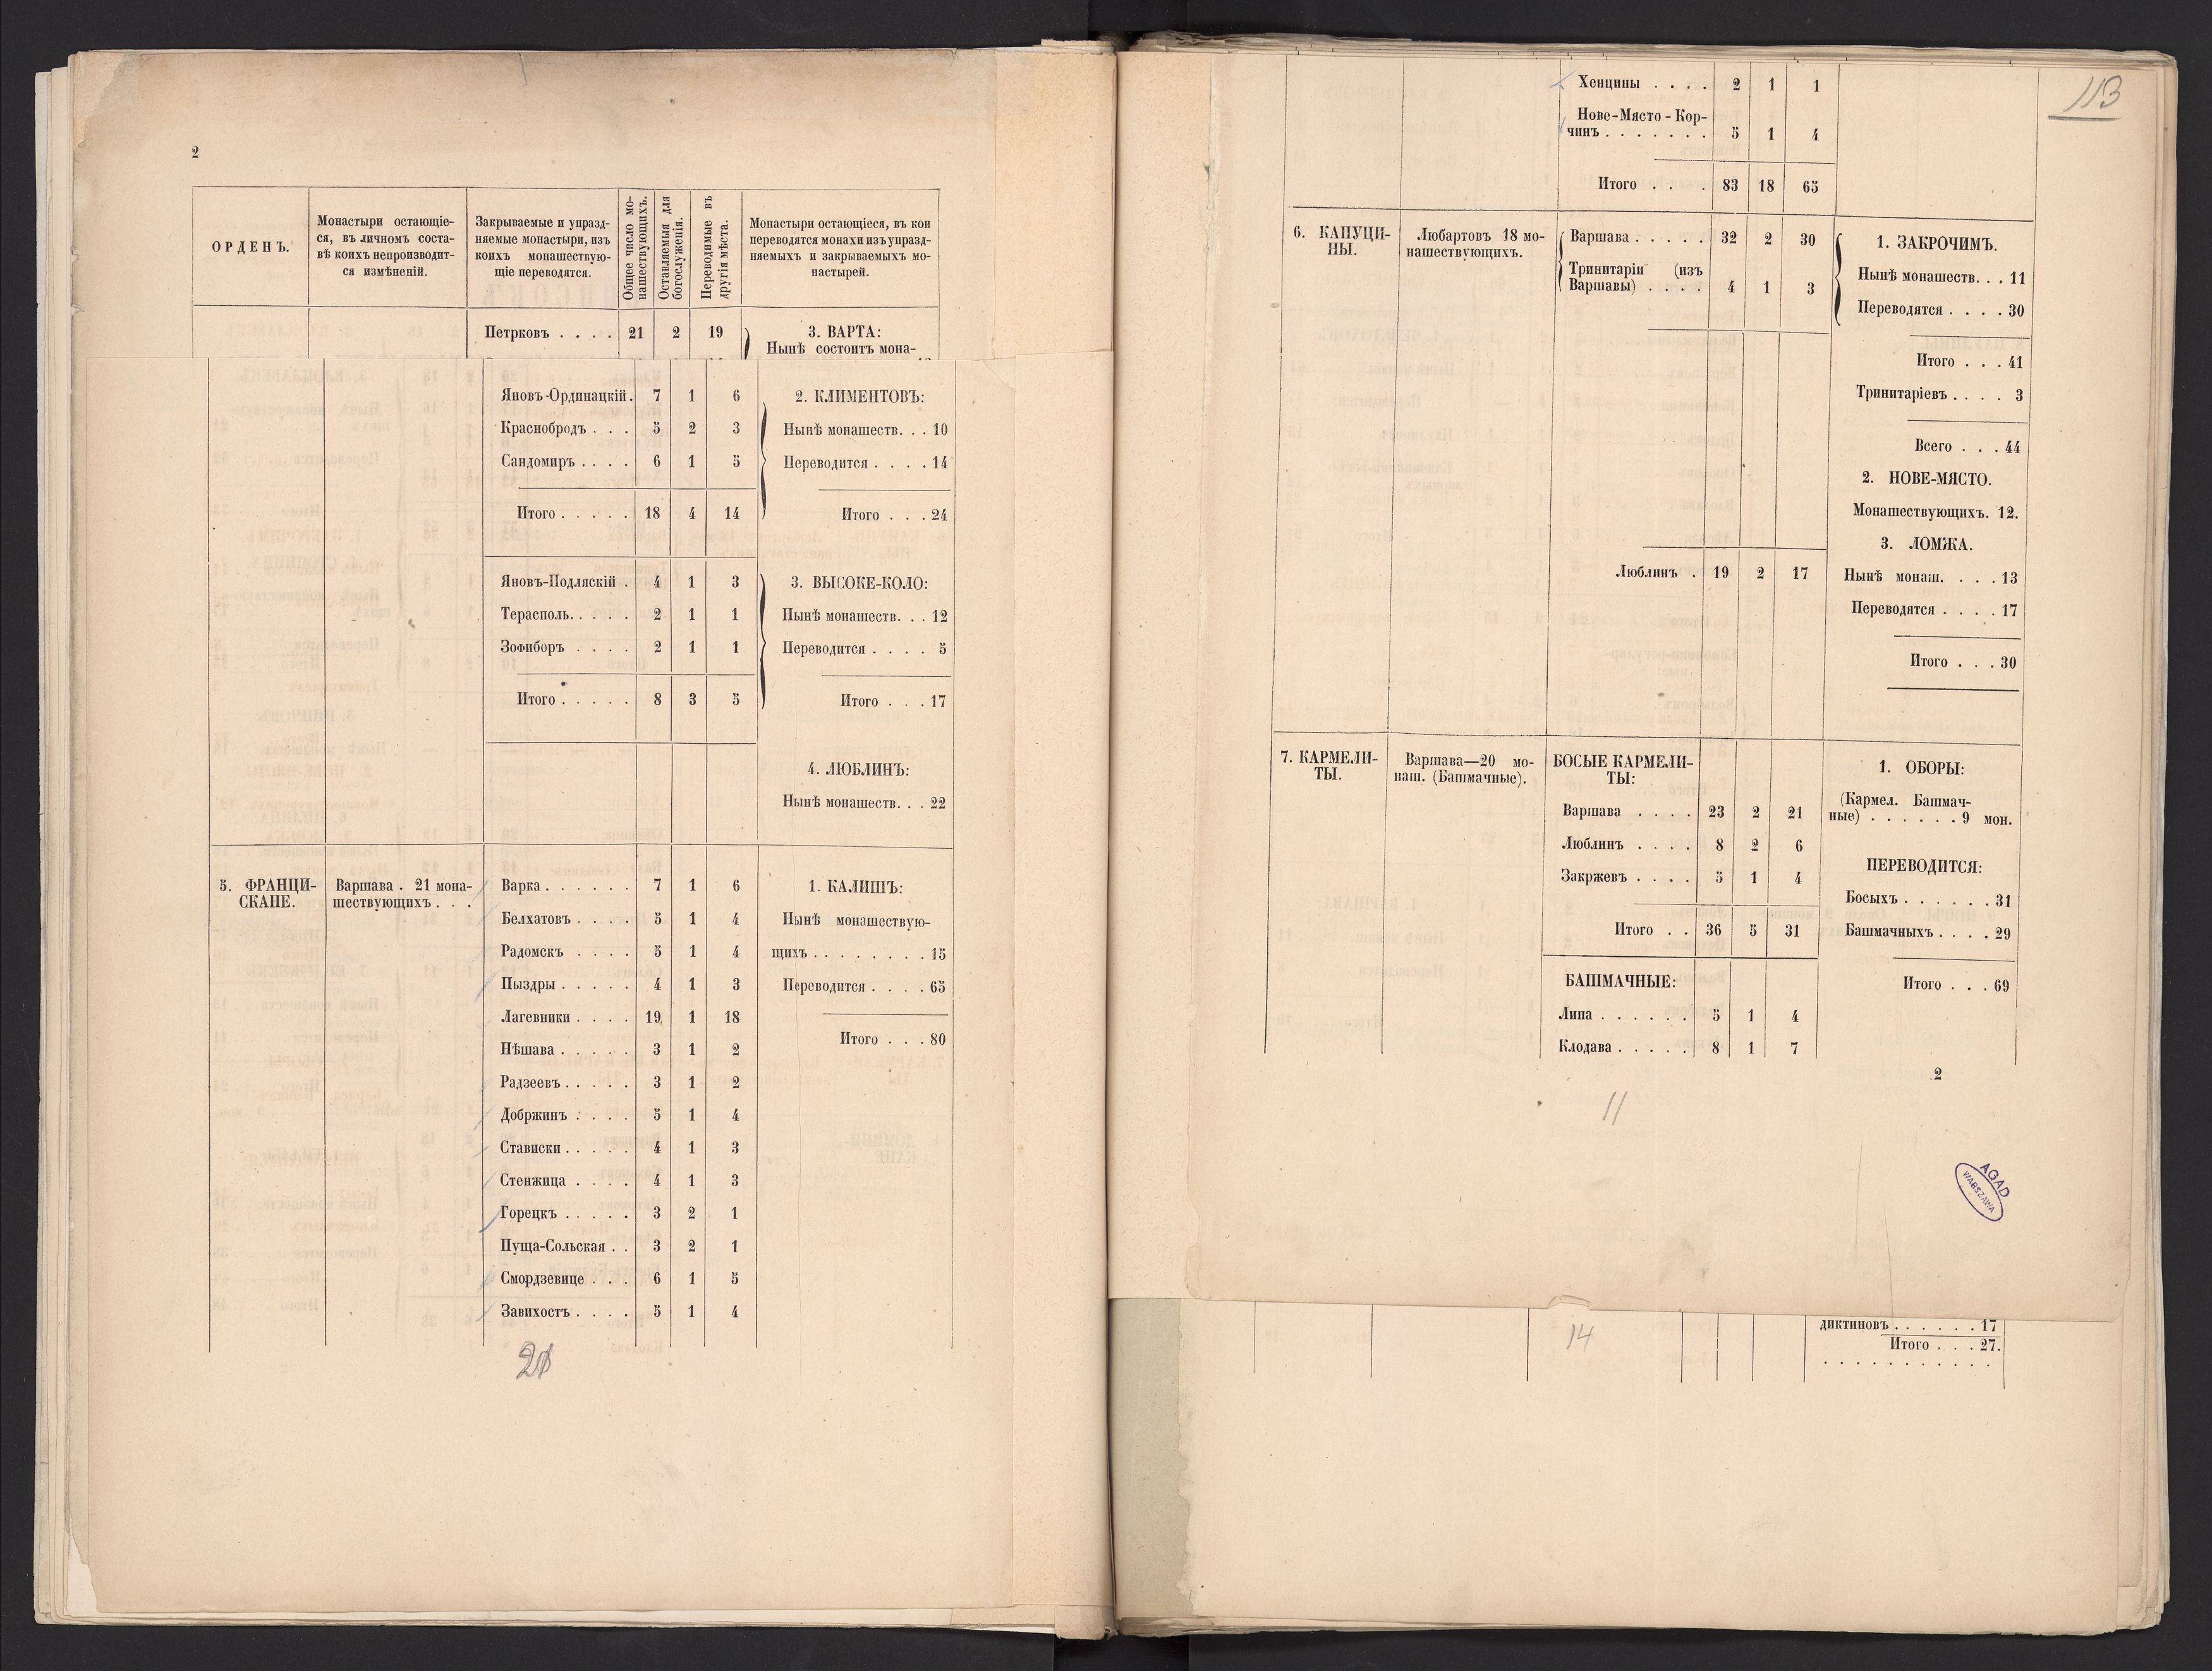 2
ОРДЕНЪ.
Монастыри остающіе-
ся, въ личномъ соста-
вѣ коихъ непроизводит-
ся измѣненій.
Закрываемые и упразд-
няемые монастыри, изъ
коихъ монашествую-
щіе переводятся.
Общее число мо-
нашествующихъ.
Оставляемыя для
богослуженія.
Переводимые въ
другія мѣста.
Монастыри остающіеся, въ кои
переводятся монахи изъ упразд-
няемыхъ и закрываемыхъ мо-
настырей.
Петрковъ . . . . 21 2 19
3. ВАРТА:
Нынѣ состоитъ мона-
Яновъ-Ординацкій. 7 1 6
Краснобродъ . . . 5 2 3
Сандомиръ . . . . 6 1 5
Итого . . . . . 18 4 14
2. КЛИМЕНТОВЪ:
Нынѣ монашеств. . . 10
Переводится . . . . 14
Итого . . . 24
Яновъ-Подляскій . 4 1 3
Терасполь. . . . . 2 1 1
Зофиборъ . . . . 2 1 1
Итого . . . . . 8 3 5
3. ВЫСОКЕ-КОЛО:
Нынѣ монашеств. . . 12
Переводится . . . . 5
Итого . . . 17
4. ЛЮБЛИНЪ:
Нынѣ монашеств. . . 22
5. ФРАНЦИ-
СКАНЕ.
Варшава . 21 мона-
шествующихъ . . .
Варка . . . . . . 7 1 6
Белхатовъ . . . . 5 1 4
Радомскъ . . . . 5 1 4
Пыздры . . . . . 4 1 3
Лагевники . . . . 19 1 18
Нѣшава . . . . . 3 1 2
Радзеевъ . . . . . 3 1 2
Добржинъ . . . . 5 1 4
Стависки . . . . . 4 1 3
Стенжица . . . . 4 1 3
Горецкъ . . . . . 3 2 1
Пуща-Сольская . . 3 2 1
Смордзевице . . . 6 1 5
Завихостъ . . . . 5 1 4
1. КАЛИШЪ:
Нынѣ монашествую-
щихъ . . . . . . . . 15
Переводится . . . . 65
Итого . . . 80
113
Хенцины . . . . 2 1 1
Нове-Място-Кор-
чинъ . . . . . . . 5 1 4
Итого . . . 83 18 65
6. КАПУЦИ-
НЫ.
Любартовъ 18 мо-
нашествующихъ.
Варшава . . . . . 32 2 30
Тринитаріи (изъ
Варшавы) . . . . 4 1 3
Люблинъ . 19 2 17
1. ЗАКРОЧИМЪ.
Нынѣ монашеств. . . 11
Переводятся . . . . 30
Итого . . . 41
Тринитаріевъ . . . . 3
Всего . . . 44
2. НОВЕ-МЯСТО.
Монашествующихъ. 12.
3. ЛОМЖА.
Нынѣ монаш. . . . 13
Переводятся . . . . 17
Итого . . . 30
7. КАРМЕЛИ-
ТЫ.
Варшава—20 мо-
наш. (Башмачные).
БОСЫЕ КАРМЕЛИ-
ТЫ:
Варшава . . . . 23 2 21
Люблинъ . . . . 8 2 6
Закржевъ . . . . 5 1 4
Итого . . 36 5 31
БАШМАЧНЫЕ:
Липа . . . . . . 5 1 4
Клодава . . . . . 8 1 7
1. ОБОРЫ:
(Кармел. Башмач-
ные) . . . . . . 9 мон.
ПЕРЕВОДИТСЯ:
Босыхъ . . . . . . 31
Башмачныхъ . . . . 29
Итого . . . 69
2
11
AGAD
WARSZAWA
14
диктиновъ . . . . . . 17
Итого . . . 27.